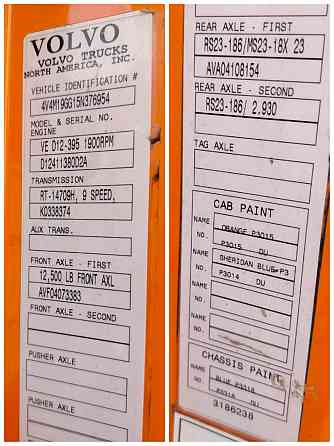 VOLVO
VOLVO TRUCKS
NORTH AMERICA, INC.
VEHICLE IDENTIFICATION #
4V4M19GG15N376954
MODEL & SERIAL NO.
ENGINE
VE D12-395 1900RPM
D12411380O2A
TRANSMISSION
RT-14709H, 9 SPEED,
K0338374
AUX TRANS.
FRONT AXLE - FIRST
12,500 LB FRONT AXL
AVF04073383
FRONT AXLE - SECOND
PUSHER AXLE
PUSHER AXLE
REAR AXLE - FIRST
RS23-186/MS23-18X 23
AVA04108154
REAR AXLE - SECOND
RS23-186/ 2.930
TAG AXLE
CAB PAINT
NAME ORANGE P3015
NO. P3015 DU
NAME SHERIDAN BLUE-P3
NO. P3014 DU
NAME
NO.
NAME
NO.
CHASSIS PAINT
NAME BLUE P3018
NO. P3018 DU
3186238